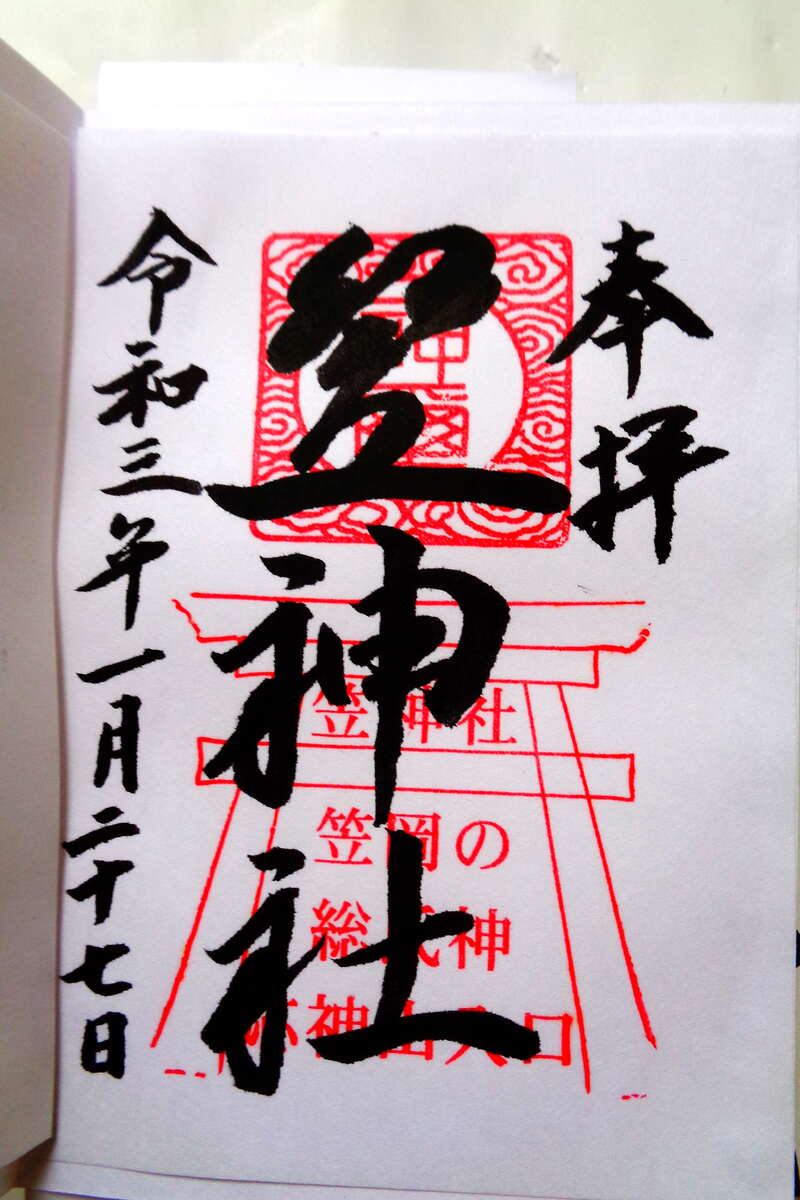 奉拝
笠神社
令和三年一月二十七日
笠神社
笠岡の
総氏神
神山入口